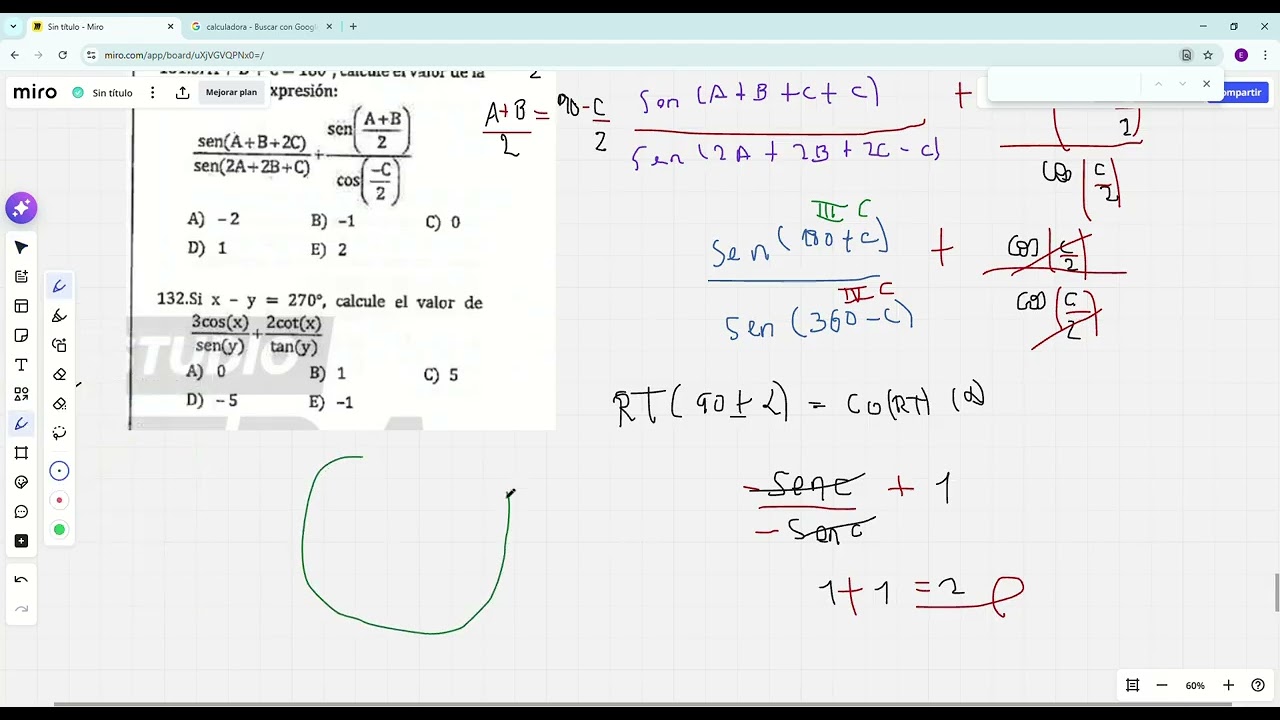 Sin título - Miro
calculadora - Buscar con Google
miro.com/app/board/uXjVGVQPNx0=/
E
miro
Sin título
Mejorar plan
ompartir
calcule el valor de la
xpresión:
sen(A+B+2C)
sen(2A+2B+C)
+
sen(A+B/2)
cos(-C/2)
A) -2 B) -1 C) 0
D) 1 E) 2
132.Si x - y = 270°, calcule el valor de
3cos(x)/sen(y) + 2cot(x)/tan(y)
A) 0 B) 1 C) 5
D) -5 E) -1
STUDIO
2
A+B/2 = 90-C/2
Sen (A+B+C+C) +
Sen (2A+2B+2C-C)
2
Cos (C/2)
III C
Sen (180+C) + Cos (C/2)
IV C
Sen (360-C) Cos (C/2)
RT(90±α) = CO(RT) (α)
-Sen C + 1
-Sen C
1+1 = 2
60%